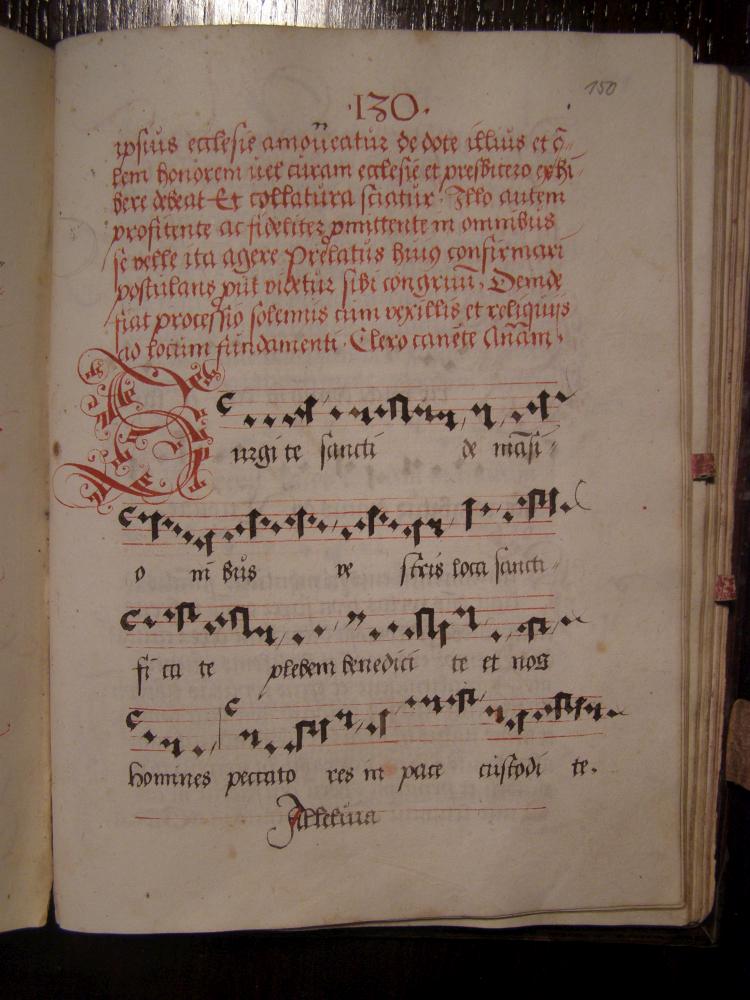 150
·130·
ipsius ecclesie amoueatur de dote illius et q̄-
lem honorem uel curam ecclesie et presbitero exhi-
bere debeat Et collatura sciatur· Illo autem
profitente ac fideliter ꝓmittente in omnibus
se velle ita agere Prelatus huiꝰ confirmari
postulans ꝓut videtur sibi congruū· Deinde
fiat processio solemnis cum vexillis et reliquijs
ad locum fundamenti· Clero canēte Anām·
Surgite sancti de māsi-
o ni bus ve stris loca sancti-
fi ca te plebem benedici te et nos
homines peccato res in pace custodi te.
Alleluia